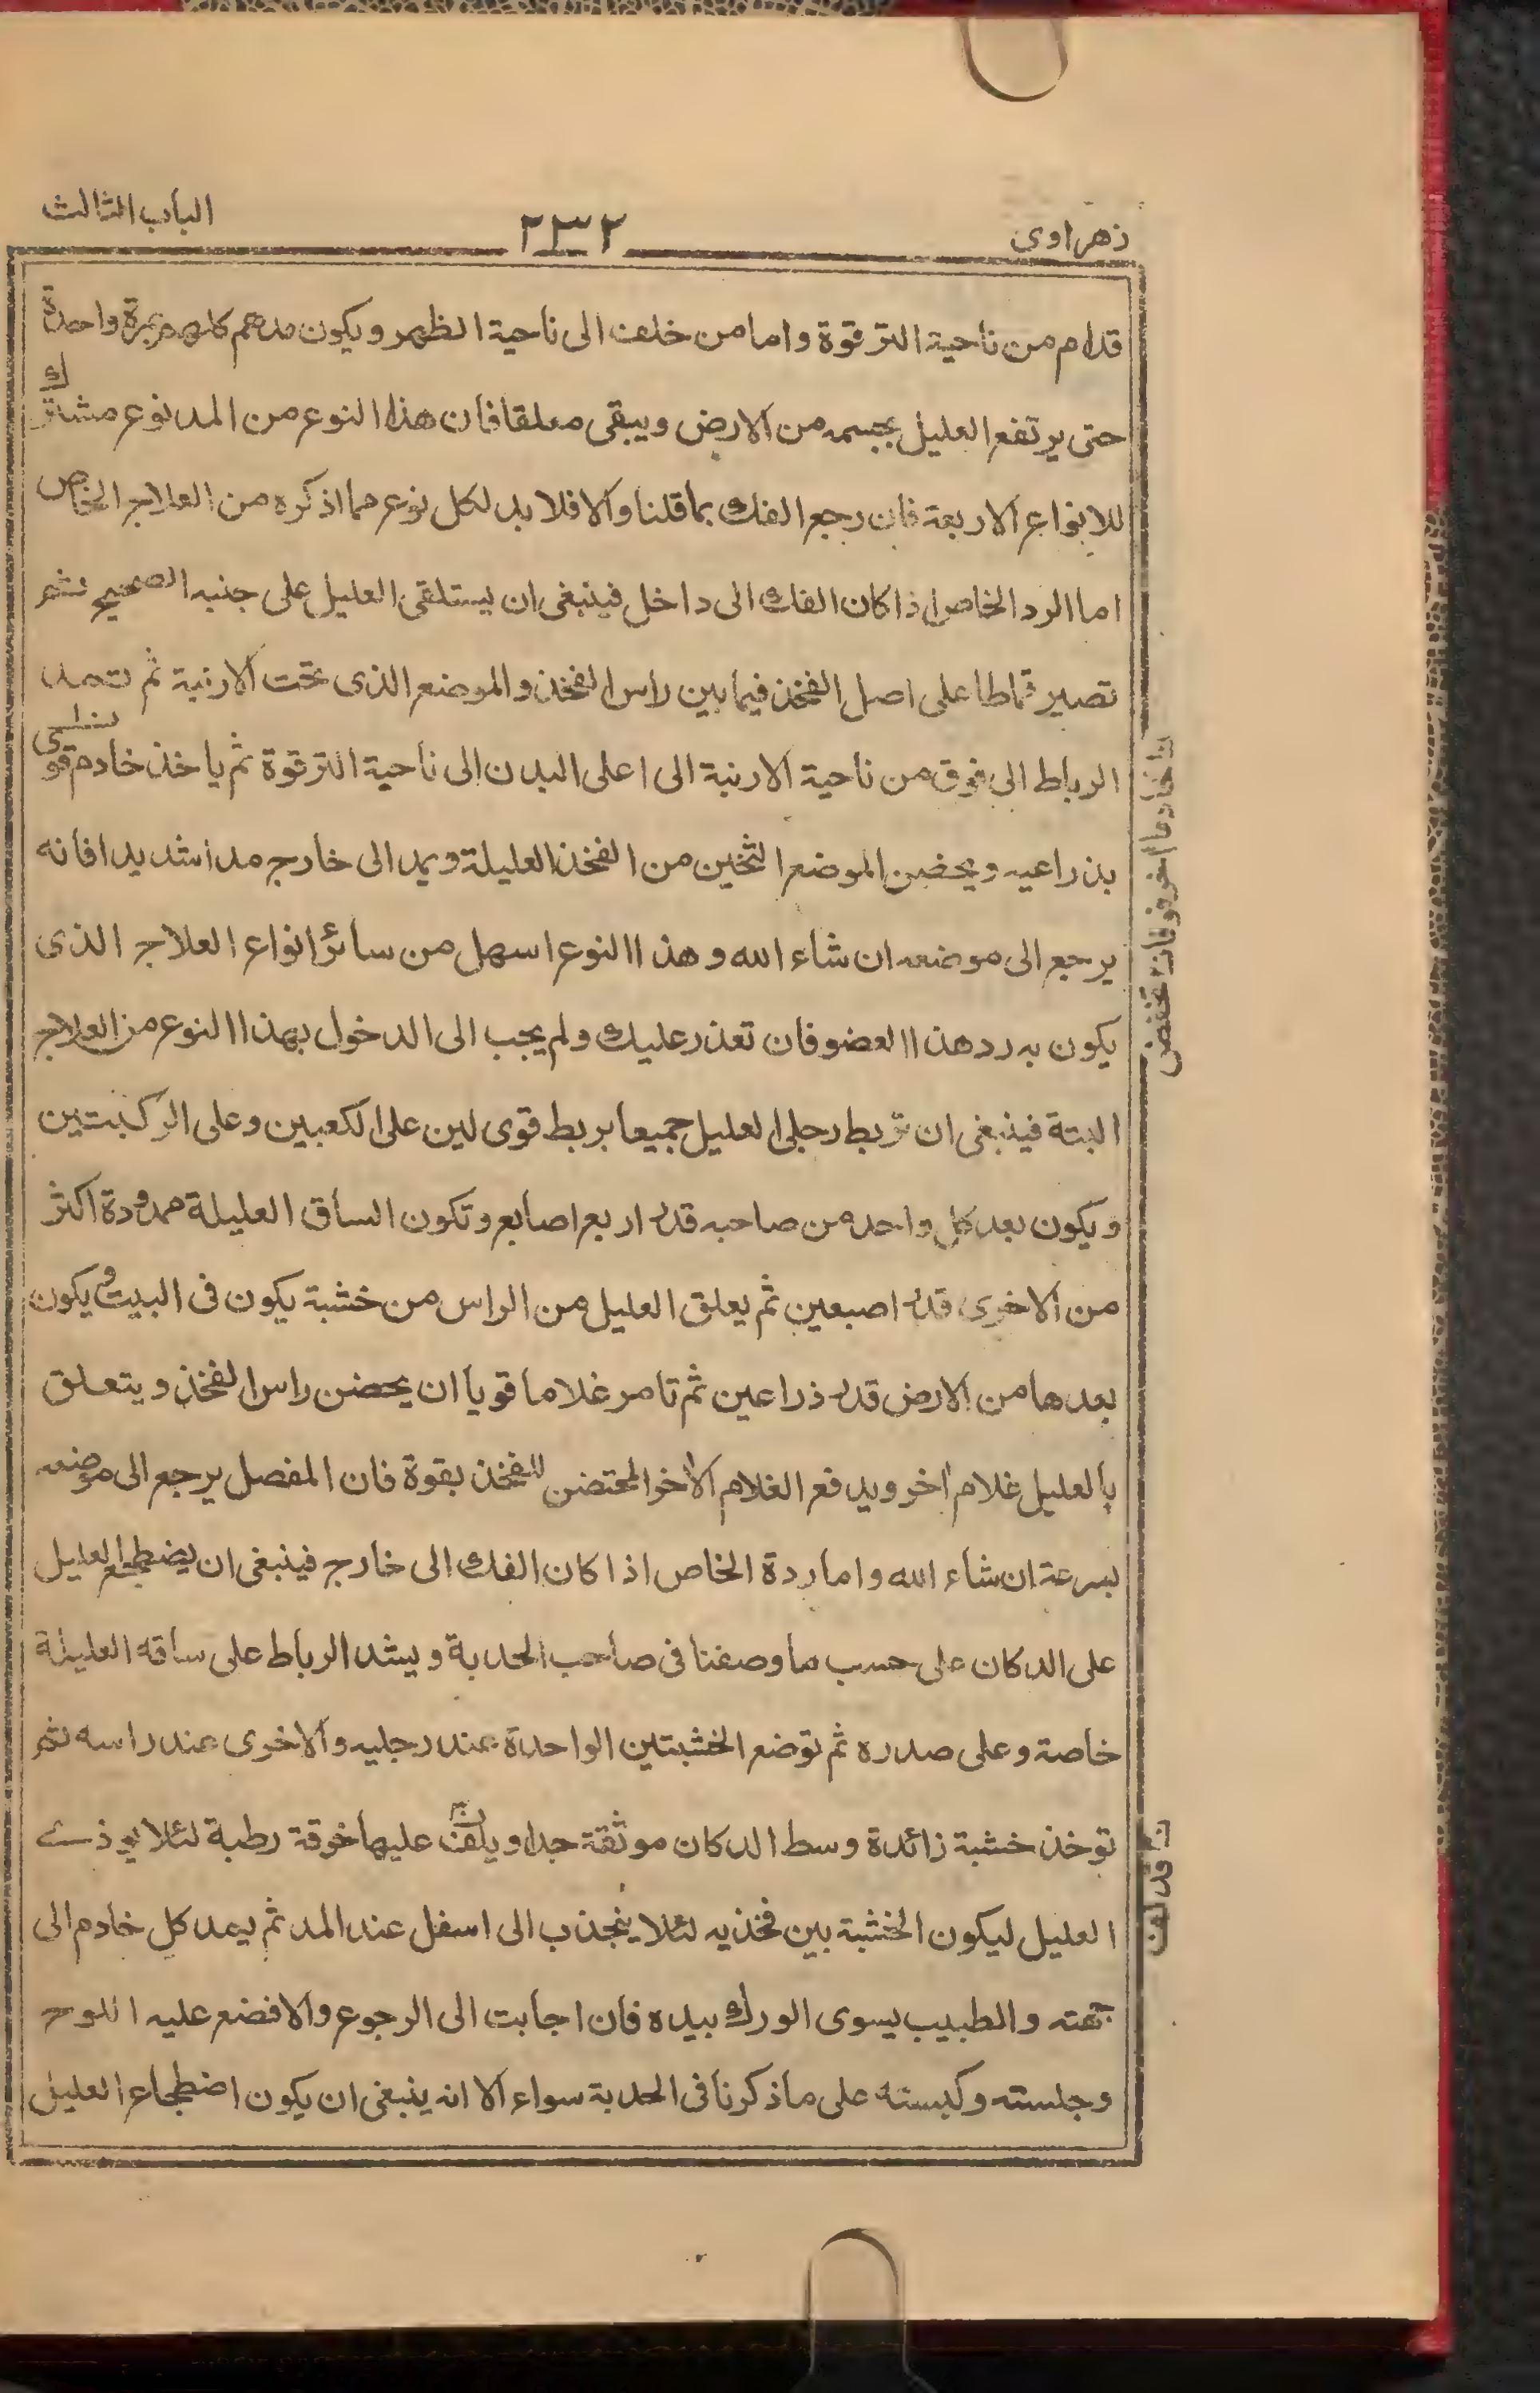 زهراوى
٢٣٢
الباب الثالث
قدام من ناحية الترقوة واما من خلف الى ناحية الظهر ويكون مدهم كلهم بمرة واحدة
حتى يرتفع العليل بجسمه من الارض ويبقى معلقا فان هذا النوع من المد نوع مشترك
للانواع الاربعة فان رجع الفك بما قلنا والا فلا بد لكل نوع مما اذكره من العلاج الخاص
اما الرد الخاص اذا كان الفك الى داخل فينبغى ان يستلقى العليل على جنبه الصحيح ثم
تصير قماطا على اصل الفخذ فيما بين راس الفخذ والموضع الذى تحت الارنبة ثم تمد
الرباط الى فوق من ناحية الارنبة الى اعلى البدن الى ناحية الترقوة ثم ياخذ خادم قوى
بذراعيه ويحضن الموضع الثخين من الفخذ العليلة ويمد الى خارج مدا شديدا فانه
يرجع الى موضعه ان شاء الله وهذا النوع اسهل من سائر انواع العلاج الذى
يكون به رد هذا العضو فان تعذر عليك ولم يجب الى الدخول بهذا النوع من العلاج
البتة فينبغى ان تربط رجلى العليل جميعا بربط قوى لين على الكعبين وعلى الركبتين
ويكون بعد كل واحد من صاحبه قدر اربع اصابع وتكون الساق العليلة ممدودة اكثر
من الاخرى قدر اصبعين ثم يعلق العليل من الراس من خشبة يكون فى البيت ويكون
بعدها من الارض قدر ذراعين ثم تامر غلاما قويا ان يحضن راس الفخذ ويتعلق
بالعليل غلام آخر ويدفع الغلام الاخر المحتضن للفخذ بقوة فان المفصل يرجع الى موضعه
بسرعة ان شاء الله واما ردة الخاص اذا كان الفك الى خارج فينبغى ان يضطجع العليل
على الدكان على حسب ما وصفنا فى صاحب الحدبة ويشد الرباط على ساقه العليلة
خاصة وعلى صدره ثم توضع الخشبتين الواحدة عند رجليه والاخرى عند راسه ثم
توخذ خشبة زائدة وسط الدكان موثقة جدا ويلف عليها خرقة رطبة لئلا يوذى
العليل ليكون الخشبة بين فخذيه لئلا ينجذب الى اسفل عند المد ثم يمد كل خادم الى
جهته والطبيب يسوى الورك بيده فان اجابت الى الرجوع والا فضع عليه اللوح
وجلسته وكبسته على ما ذكرنا فى الحدبة سواء الا انه ينبغى ان يكون اضطجاع العليل
قد لف